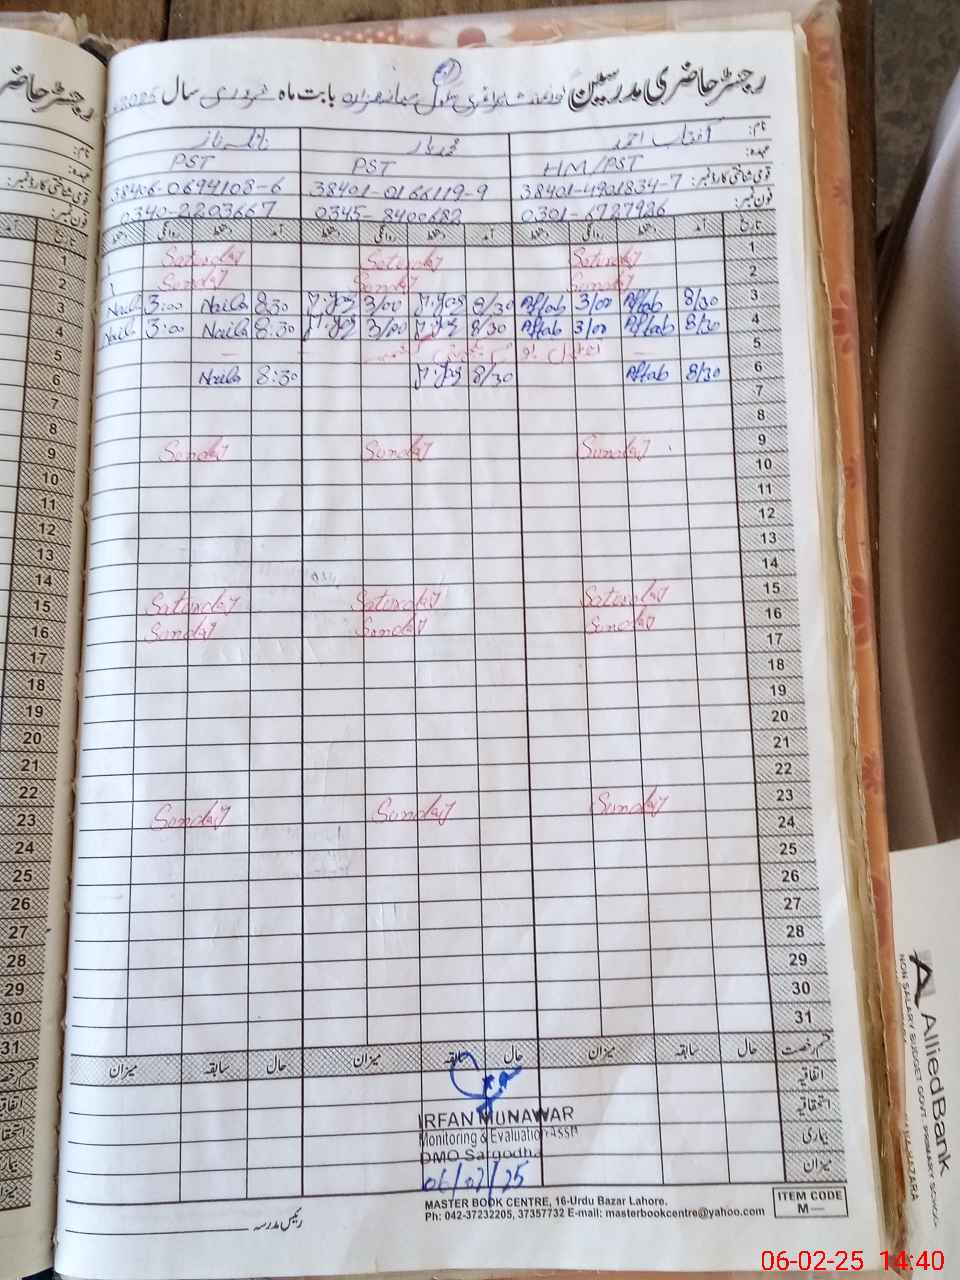 رجسٹر حاضری مدرسین
بابت ماہ فروری سال 2025
نام: آفتاب احمد
عہدہ: HM/PST PST PST
قومی شناختی کارڈ نمبر: 38401-4901834-7 38401-0166119-9 38406-0694108-6
فون نمبر: 0301-6727926 0345-8400682 0340-2203667
تاریخ آمد دستخط روانگی دستخط آمد دستخط روانگی دستخط آمد دستخط روانگی دستخط
1 Saturday Saturday Saturday 1
2 Sunday Sunday Sunday 2
Naila 3:00 Naila 8:30 3/00 8/30 Aftab 3/00 Aftab 8/30 3
Naila 3:00 Naila 8:30 3/00 8/30 Aftab 3/00 Aftab 8/30 4
5
Naila 8:30 8/30 Aftab 8/30 6
7
8
Sunday Sunday Sunday 9
10
11
12
13
14
Saturday Saturday Saturday 15
Sunday Sunday Sunday 16
17
18
19
20
21
22
Sunday Sunday Sunday 23
24
25
26
27
28
29
30
31
قسم رخصت حال سابقہ میزان حال سابقہ میزان حال سابقہ میزان
اتفاقیہ
استحقاقیہ
بیماری
میزان
IRFAN MUNAWAR
Monitoring & Evaluation Asstt
DMO Sargodha
06/02/25
رئیس مدرسہ
MASTER BOOK CENTRE, 16-Urdu Bazar Lahore.
Ph: 042-37232205, 37357732 E-mail: masterbookcentre@yahoo.com
ITEM CODE
M—
AlliedBank
NON SALARY BUDGET GOVT. PRIMARY SCHOOL
06-02-25 14:40